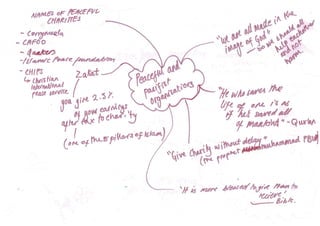 NAMES OF PEACEFUL
CHARITIES
- Corrymeela
- CAFOD
- Quakers
- Islamic Peace foundation
- CHIPS
↳ Christian
International
peace service
Zakat
you give 2.5%
of your earnings
after tax to charity
(one of the 5 pillars of Islam)
Peaceful and
pacifist
organisations
"we are all made in the
image of God"
- so we should all
help eachother
and not
harm
"He who saves the
life of one is as
if he saved all
of mankind" - Quran
"Give charity without delay"
(the prophet muhammad PBUH)
"It is more blessed to give than to
receive"
- Bible.